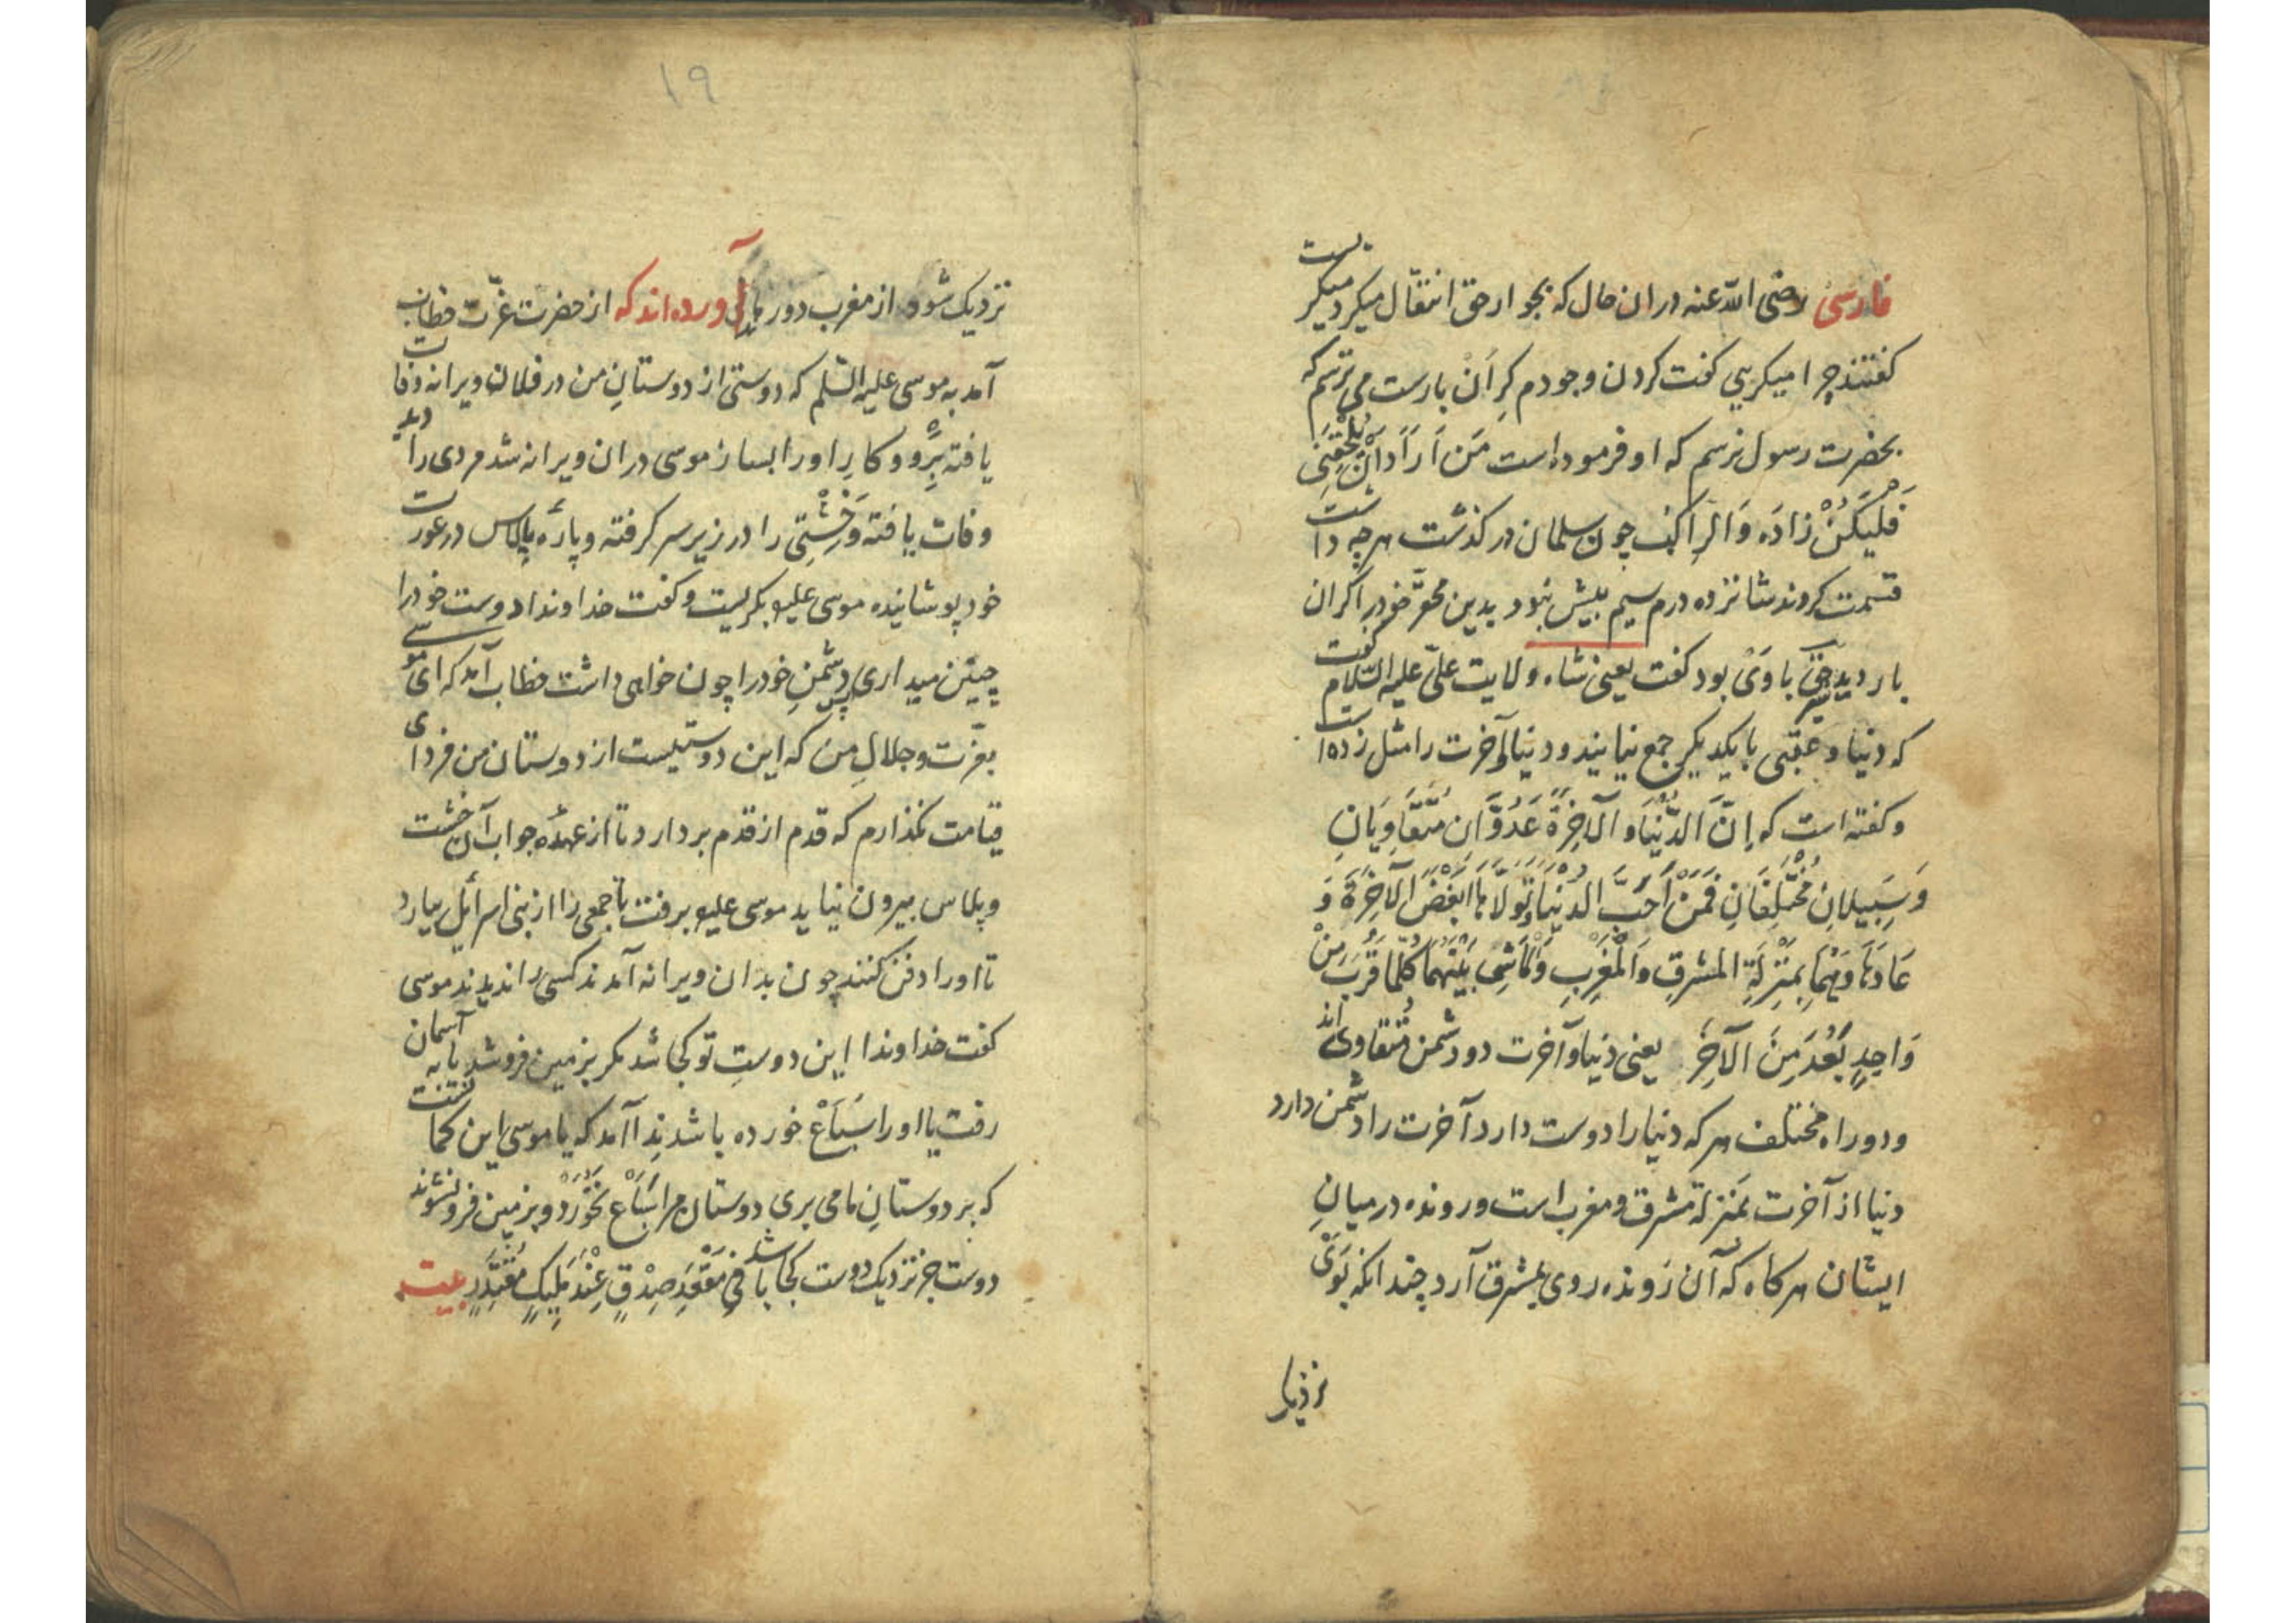 فارسی رضی الله عنه دران حال که بجوار حق انتقال میکرد میکریست
کفتند چرا میکریی کفت کردن وجودم کران بارست می ترسم که
بحضرت رسول نرسم که او فرموده است مَن اَرَادَ اَنْ یَلْحَقَنِی
فَلْیَکُنْ زادَه وَالراکِب چون سلمان در کذشت هرچه داشت
قسمت کردند شانزده درم سیم بیش نبود بدین محقّر خود را کران
بار دید باوَی بود کفت یعنی شاه ولایت علیّ علیه السّلام کفت
که دنیا و عقبی با یکدیکر جمع نیایند و دنیا و آخرت را مثل زده است
و کفته است که اِنَّ الدُّنْیَا وَ الآخِرَةَ عَدُوَّانِ مُتَفَاوِیَانِ
وَسَبِیلانِ مُخْتَلِفَانِ فَمَنْ اَحَبَّ الدُنْیَا وَتَوَلّاهَا اَبْغَضَ الآخِرَةَ وَ
عَادَهَا وَهُمَا بِمَنْزِلَةِ المشرِقِ وَالْمَغْرِبِ وَمَاشٍ بَیْنَهُمَا کُلَّمَا قَرُبَ مِنْ
وَاحِدٍ بَعُدَ مِنَ الآخَرَ یعنی دنیا و آخرت دو دشمن متفاوت‌ی اند
و دو راه مختلف هرکه دنیا را دوست دارد آخرت را دشمن دارد
دنیا از آخرت بمنزلهٔ مشرق و مغرب است و رونده در میانِ
ایشان هرکاه که آن رَونده روی بمشرق آرد چندانکه بَوَیْ
نزدیک
۱۹
نزدیک شود از مغرب دور ماند آورده اند که از حضرت عزّت خطاب
آمد به موسی علیه السّلم که دوستی از دوستانِ من در فلان ویرانه وفات
یافته بِرَو و کارِ او را بساز موسی دران ویرانه شد مردی را دید
وفات یافته و خِشتی را در زیر سر کرفته و پارهٔ پلاس در عورت
خود پوشانیده موسی علیه بکریست و کفت خداوندا دوست خود را
چنین میداری دشمنِ خود را چون خواهی داشت خطاب آمد که ای موسی
بعزّت و جلالِ من که این دوستیست از دوستان من فردای
قیامت نکذارم که قدم از قدم بردارد تا از عهدهٔ جواب آن خشت
و پلاس بیرون نیاید موسی علیه برفت تا جمعی را از بنی اسرائیل بیارد
تا او را دفن کنند چون بدان ویرانه آمدند کسی را ندیدند موسی
کفت خداوندا این دوستِ تو کجا شد مکر بزمین فرو شد یا به آسمان
رفت یا او را سَبَاعْ خورده باشد ندا آمد که یا موسی این کمانت
که بر دوستانِ ما می بری دوستان مرا سَبَاعْ نَخُورَدْ و بزمین فرو نشوند
دوست جز نزدیک دوست کجا باشد فِی مَقْعَدِ صِدْقٍ عِنْدَ مَلِیکٍ مُقْتَدِرٍ بیت